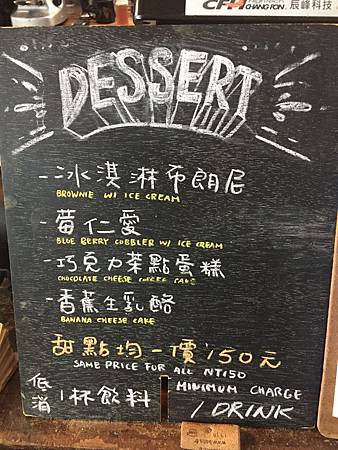 CHANG FON 辰峰科技
DESSERT
-冰淇淋布朗尼
BROWNIE W/ ICE CREAM
-莓仁愛
BLUE BERRY COBBLER W/ ICE CREAM
-巧克力茶點蛋糕
CHOCOLATE CHEESE COFFEE CAKE
-香蕉生乳酪
BANANA CHEESE CAKE
甜點均一價150元
SAME PRICE FOR ALL NT150
低消
1杯飲料
MINIMUM CHARGE
1 DRINK